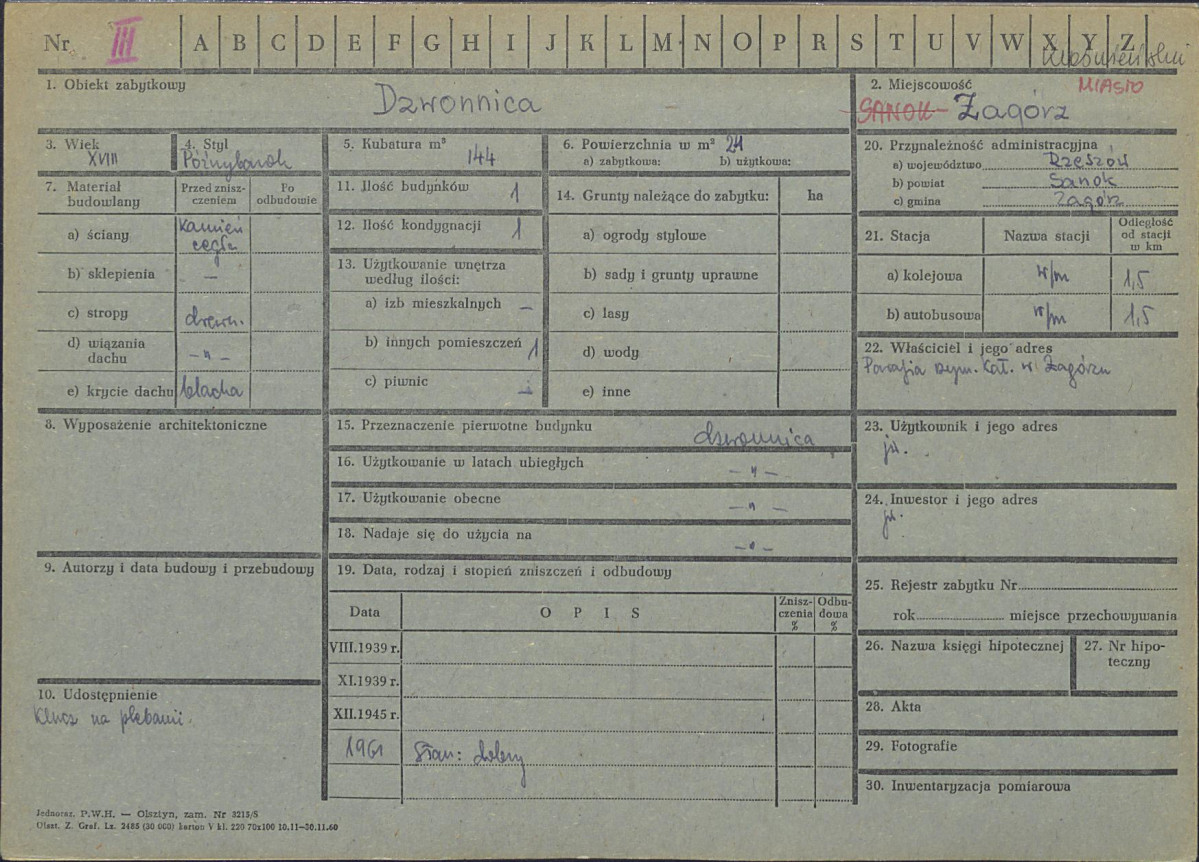 Nr III A B C D E F G H I J K L M N O P R S T U V W X Y Z
1. Obiekt zabytkowy
Dzwonnica
2. Miejscowość
MIASTO
SANOK Zagórz
3. Wiek
XVIII
4. Styl
Późnybarok
5. Kubatura m³
144
6. Powierzchnia w m² 24
a) zabytkowa: b) użytkowa:
20. Przynależność administracyjna
a) województwo Rzeszów
b) powiat Sanok
c) gmina Zagórz
7. Materiał budowlany
Przed zniszczeniem
Po odbudowie
a) ściany Kamień cegła
b) sklepienia —
c) stropy drewn.
d) wiązania dachu —"—
e) krycie dachu blacha
11. Ilość budynków 1
12. Ilość kondygnacji 1
13. Użytkowanie wnętrza według ilości:
a) izb mieszkalnych —
b) innych pomieszczeń 1
c) piwnic —
14. Grunty należące do zabytku: ha
a) ogrody stylowe
b) sady i grunty uprawne
c) lasy
d) wody
e) inne
21. Stacja Nazwa stacji Odległość od stacji w km
a) kolejowa w/m 1,5
b) autobusowa w/m 1,5
22. Właściciel i jego adres
Parafia rzym. Kat. w Zagórzu
8. Wyposażenie architektoniczne
15. Przeznaczenie pierwotne budynku dzwonnica
16. Użytkowanie w latach ubiegłych —"—
17. Użytkowanie obecne —"—
18. Nadaje się do użycia na —"—
23. Użytkownik i jego adres
jw.
24. Inwestor i jego adres
jw.
9. Autorzy i data budowy i przebudowy
19. Data, rodzaj i stopień zniszczeń i odbudowy
Data OPIS Zniszczenia % Odbudowa %
VIII.1939 r.
XI.1939 r.
XII.1945 r.
1961 Stan: dobry
25. Rejestr zabytku Nr
rok miejsce przechowywania
26. Nazwa księgi hipotecznej
27. Nr hipoteczny
10. Udostępnienie
Klucz na plebanii.
28. Akta
29. Fotografie
30. Inwentaryzacja pomiarowa
Jednoraz. P.W.H. — Olsztyn, zam. Nr 3215/S
Olszt. Z. Graf. Lz. 2485 (30 000) karton V kl. 220 70x100 10.11—30.11.60